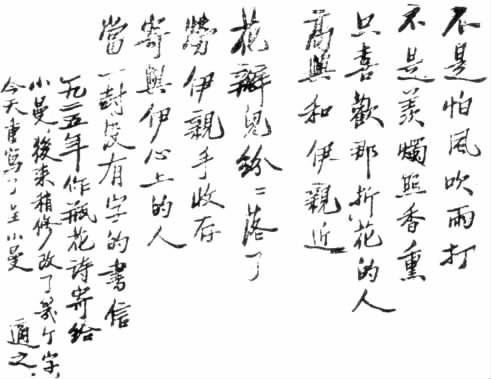 不是怕风吹雨打
不是羡烛照香熏
只喜歡那折花的人
高興和伊親近
花瓣兒紛〻落了
勞伊親手收存
寄與伊心上的人
當一封沒有字的書信
一九二五年作瓶花诗寄給
小曼，後来稍修改了幾个字，
今天重寫了呈小曼
適之.